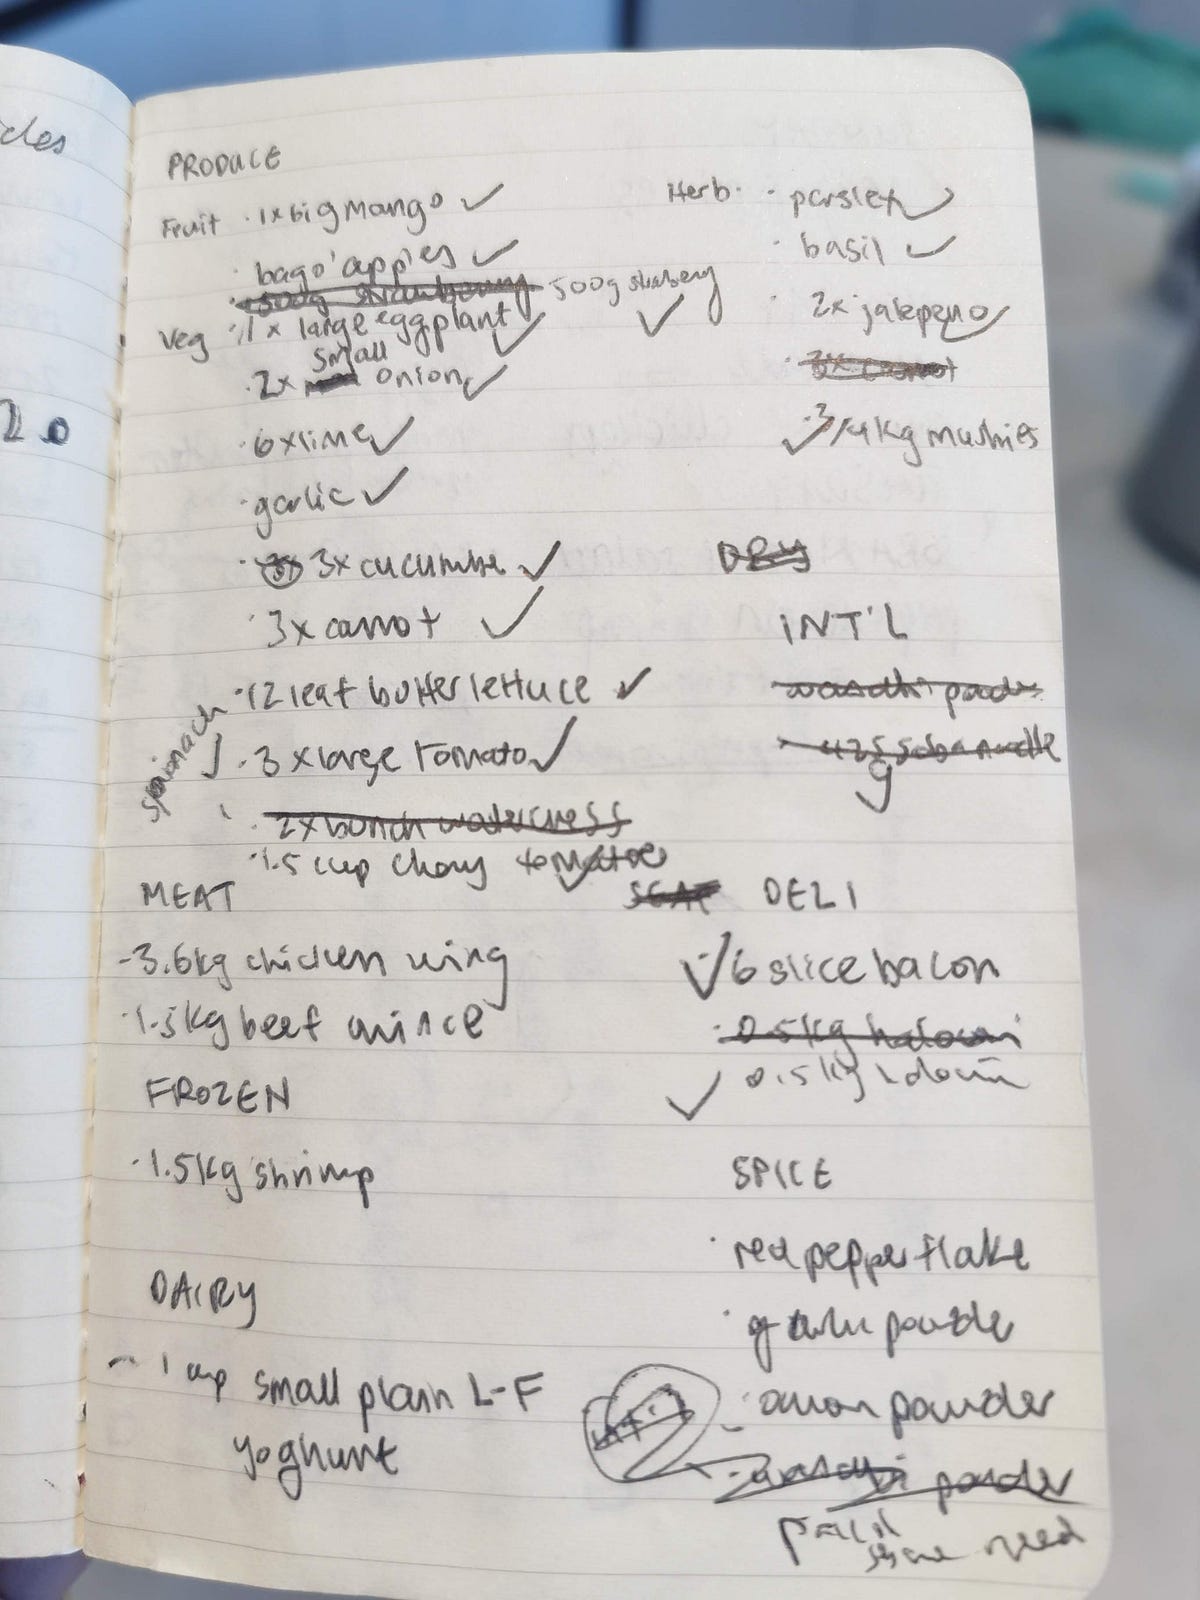 cles
20
PRODUCE
Fruit · 1x big mango ✓
· bag o' apples ✓
· 500g strawberry 500g stuberry ✓
Veg · 1 x large eggplant ✓
small
· 2x onion ✓
· 6 x lime ✓
· garlic ✓
· 3x cucumbe ✓
· 3x carrot ✓
· 12 leaf butter lettuce ✓
spionach ✓
· 3 x large tomato ✓
· 2x bunch watercress
· 1.5 cup chery tomatoe ✓
Herb · · parsley ✓
· basil ✓
· 2x jalepeno ✓
· 3x carrot
✓ · 3/4kg mushies
DRY
INT'L
wasabi powde
425g soba noodle
MEAT
- 3.6kg chicken wing
· 1.5kg beef mince
FROZEN
· 1.5kg shrimp
DAIRY
- 1 cup small plain L-F
yoghurt
DELI
✓ 6 slice bacon
· 0.5kg haloumi
✓ 0.5kg haloumi
SPICE
· red pepper flake
· garlic powde
· onion powder
INT'L
· wasabi powder
need